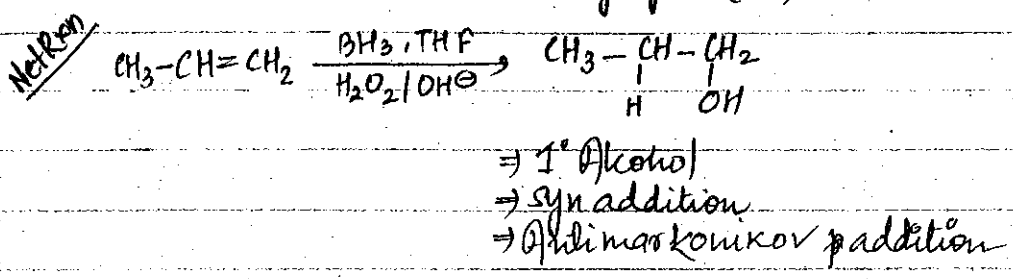 Net Rxn
CH₃-CH=CH₂ BH₃, THF CH₃-CH-CH₂
H₂O₂/OH⊖ H OH
⇒ 1° Alcohol
⇒ syn addition
⇒ Antimarkonikov addition